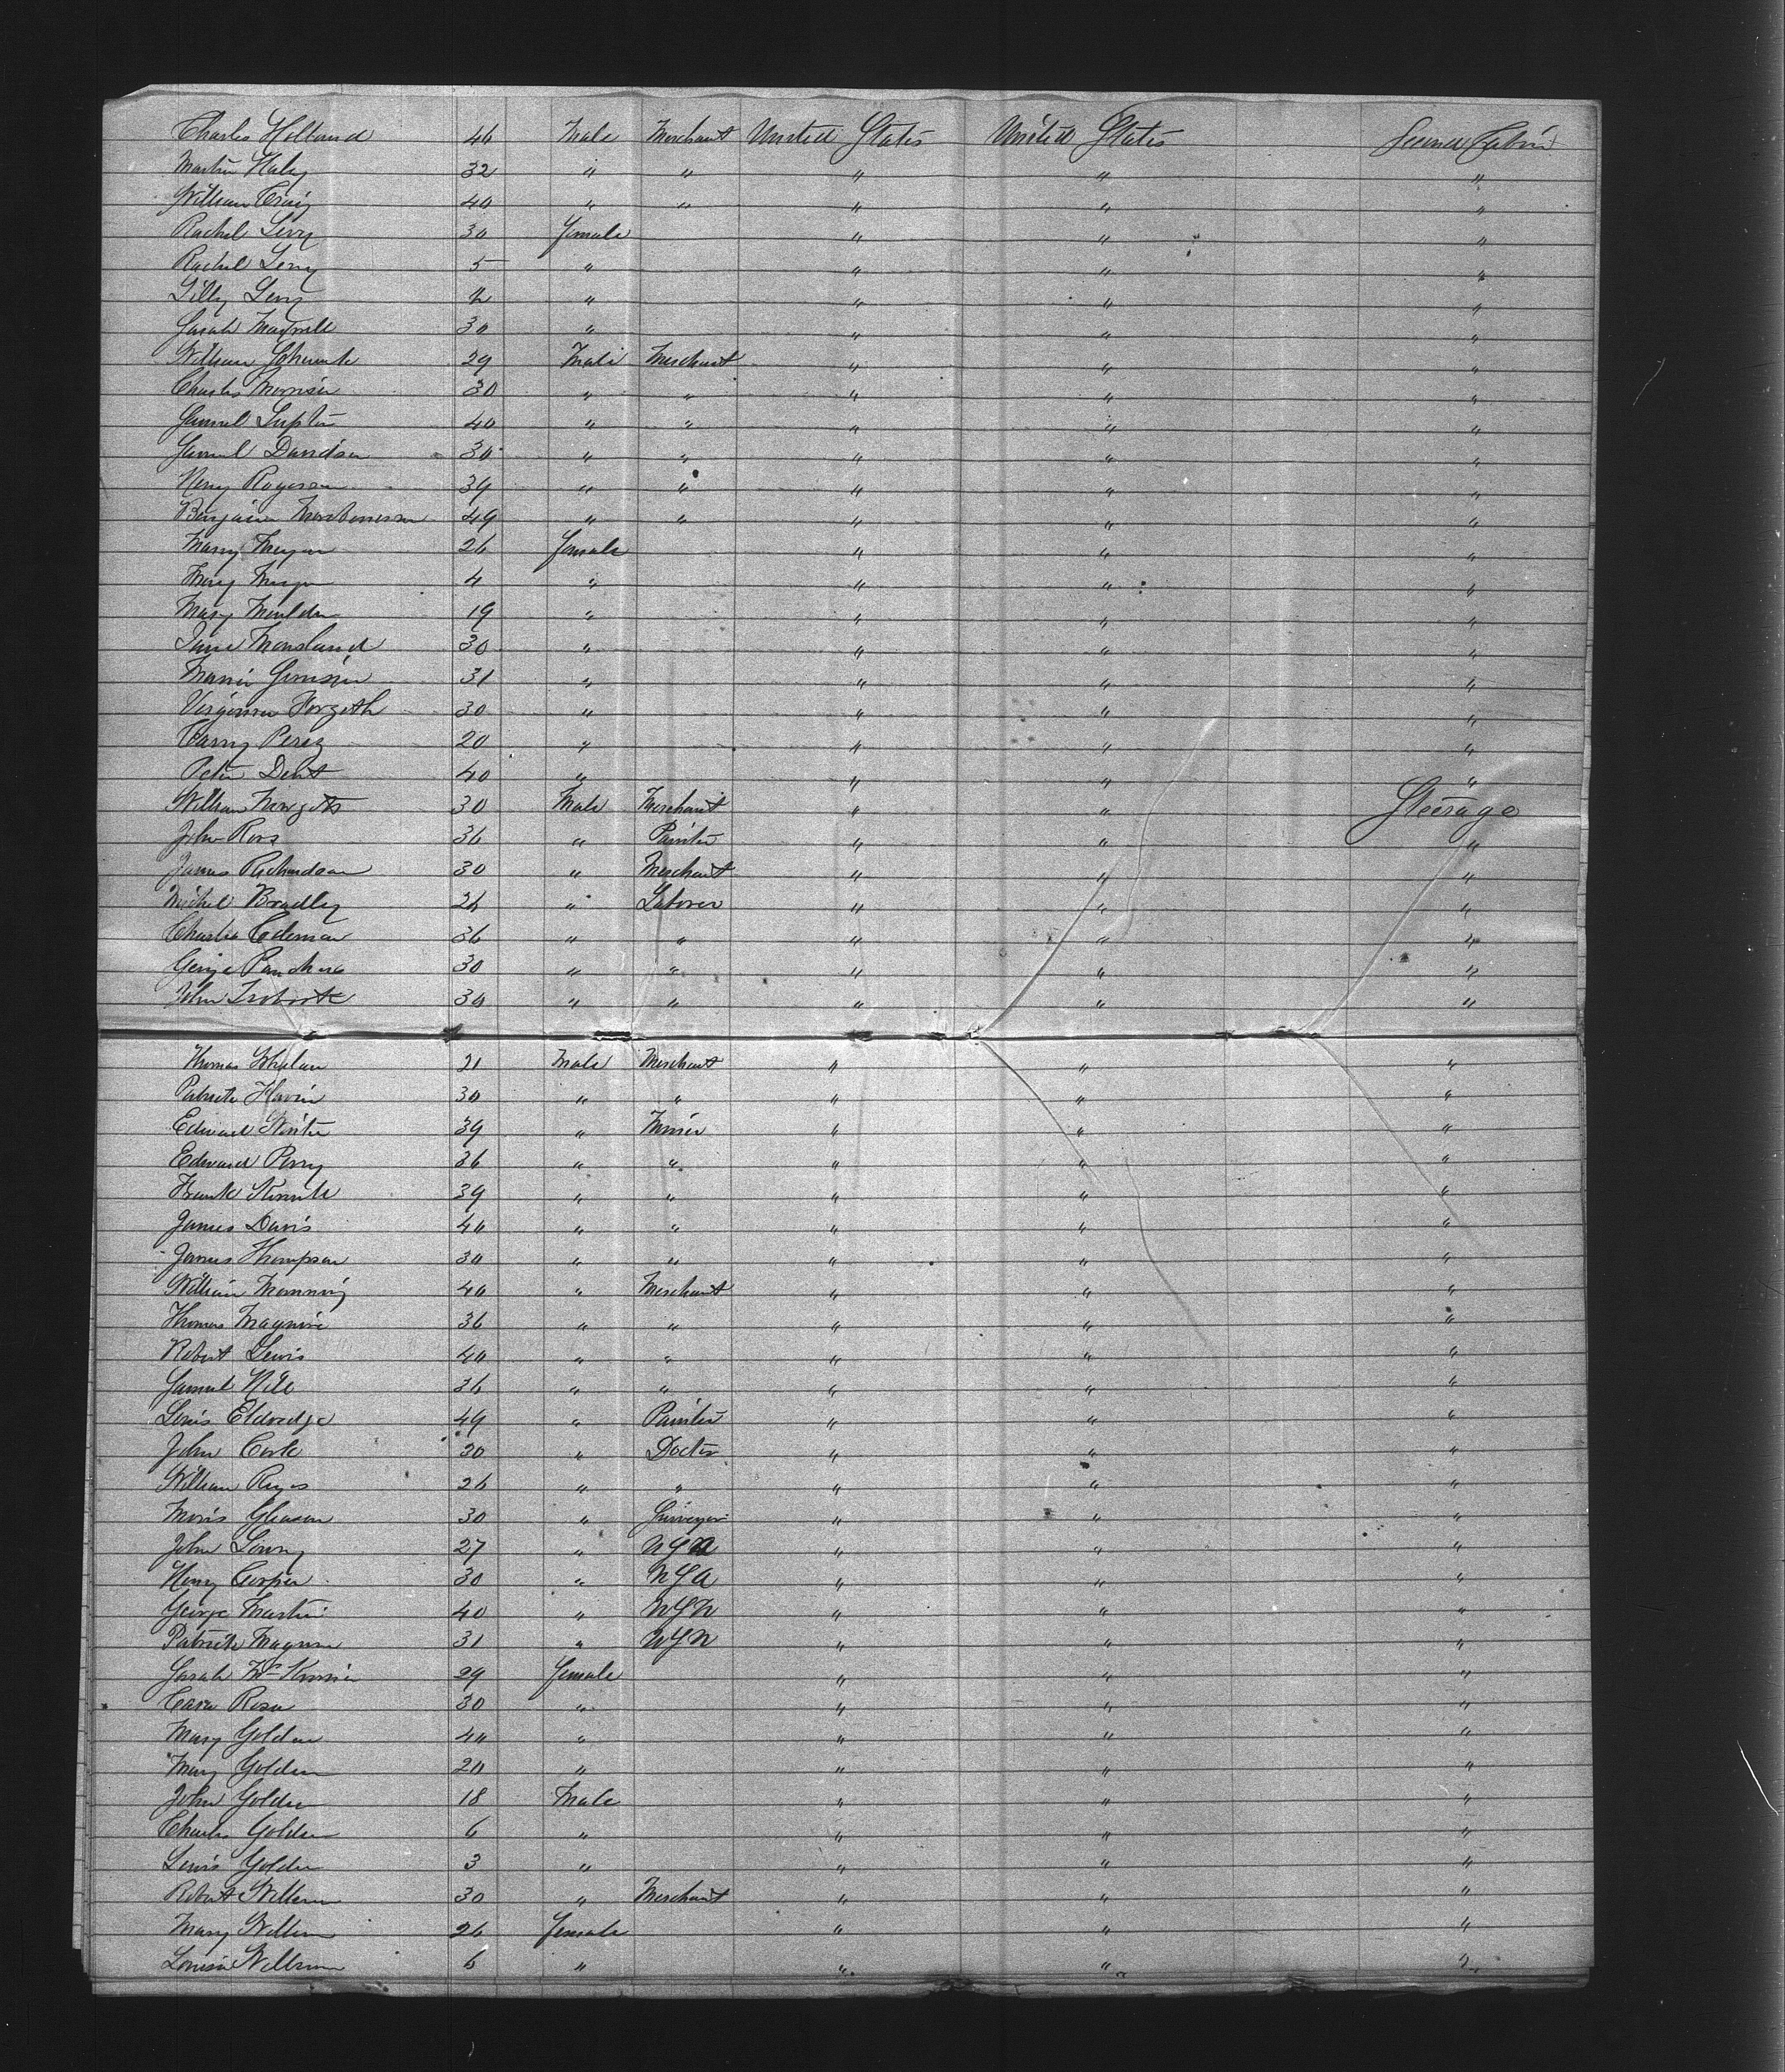 Charles Holland 46 Male Merchant United States United States Second Cabin
Martin Haley 32 " " " " "
William Craig 40 " " " " "
Rachel Levy 30 female " " "
Rachel Levy 5 " " " "
Lilly Levy " " " "
Sarah 30 " " " "
William Schenck 29 Male Merchant " " "
Charles Morrison 30 " " " " "
Samuel Lupton 40 " " " " "
Samuel Davidson 30 " " " " "
Henry Rogerson 39 " " " " "
Benjamin 49 " " " " "
Mary Meyer 26 female " " "
Mary Meyer 4 " " " "
Mary 19 " " " "
Jane 30 " " " "
31 " " " "
Virginia Forgeth 30 " " " "
Carry Perez 20 " " " "
Peter Dent 40 " " " "
William 30 Male Merchant " " Steerage
John Ross 36 " Painter " " "
James Richardson 30 " Merchant " " "
Michel Bradley 26 " Laborer " " "
Charles Coleman 36 " " " " "
George 30 " " " " "
John 30 " " " " "
Thomas Whalen 21 Male Merchant " " "
Patrick Havin 30 " " " " "
Edward Winter 39 " Miner " " "
Edward Perry 36 " " " " "
Frank 39 " " " " "
James Davis 40 " " " " "
James Thompson 30 " " " " "
William Manning 40 " Merchant " " "
Thomas Magnire 36 " " " " "
Robert Lewis 40 " " " " "
Samuel Hill 36 " " " " "
Louis Eldredge 49 " Painter " " "
John Cork 30 " Doctor " " "
William 26 " " " " "
Moris Gleason 30 " Surveyor " " "
John Lowry 27 " " " "
Henry Cooper 30 " " " "
George Martin 40 " " " "
Patrick 31 " " " "
Sarah 29 female " " "
Cara Rosa 30 " " " "
Mary Golden 40 " " " "
Mary Golden 20 " " " "
John Golden 18 Male " " "
Charles Golden 6 " " " "
Lewis Golden 3 " " " "
Robert Willson 30 " Merchant " " "
Mary Willson 26 female " " "
Louisa Willson 6 " " " "